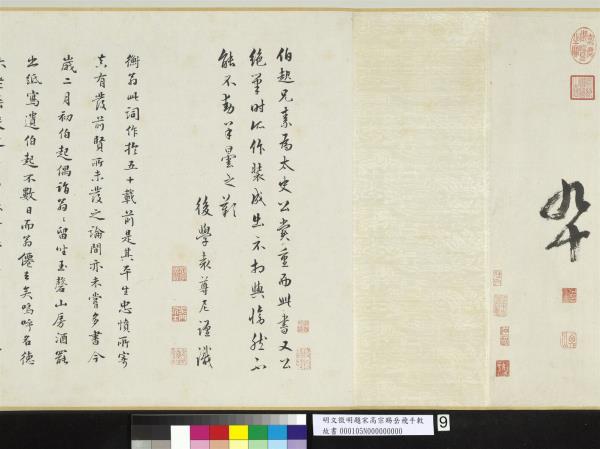 九十
伯起兄素為太史公賞重而此書又公
絕筆時所作裝成出示相與愴然不
能不動羊曇之歎
後學袁尊尼謹識
衡翁此詞作於五十載前是其平生忠憤所寄
真有發前賢所未發之論間亦未嘗多書今
歲二月初伯起偶詣翁〻留坐玉磬山房酒罷
出紙寫遺伯起不數日而翁僊去矣嗚呼名德
明文徵明題宋高宗賜岳飛手敕
故書 000105N000000000
9